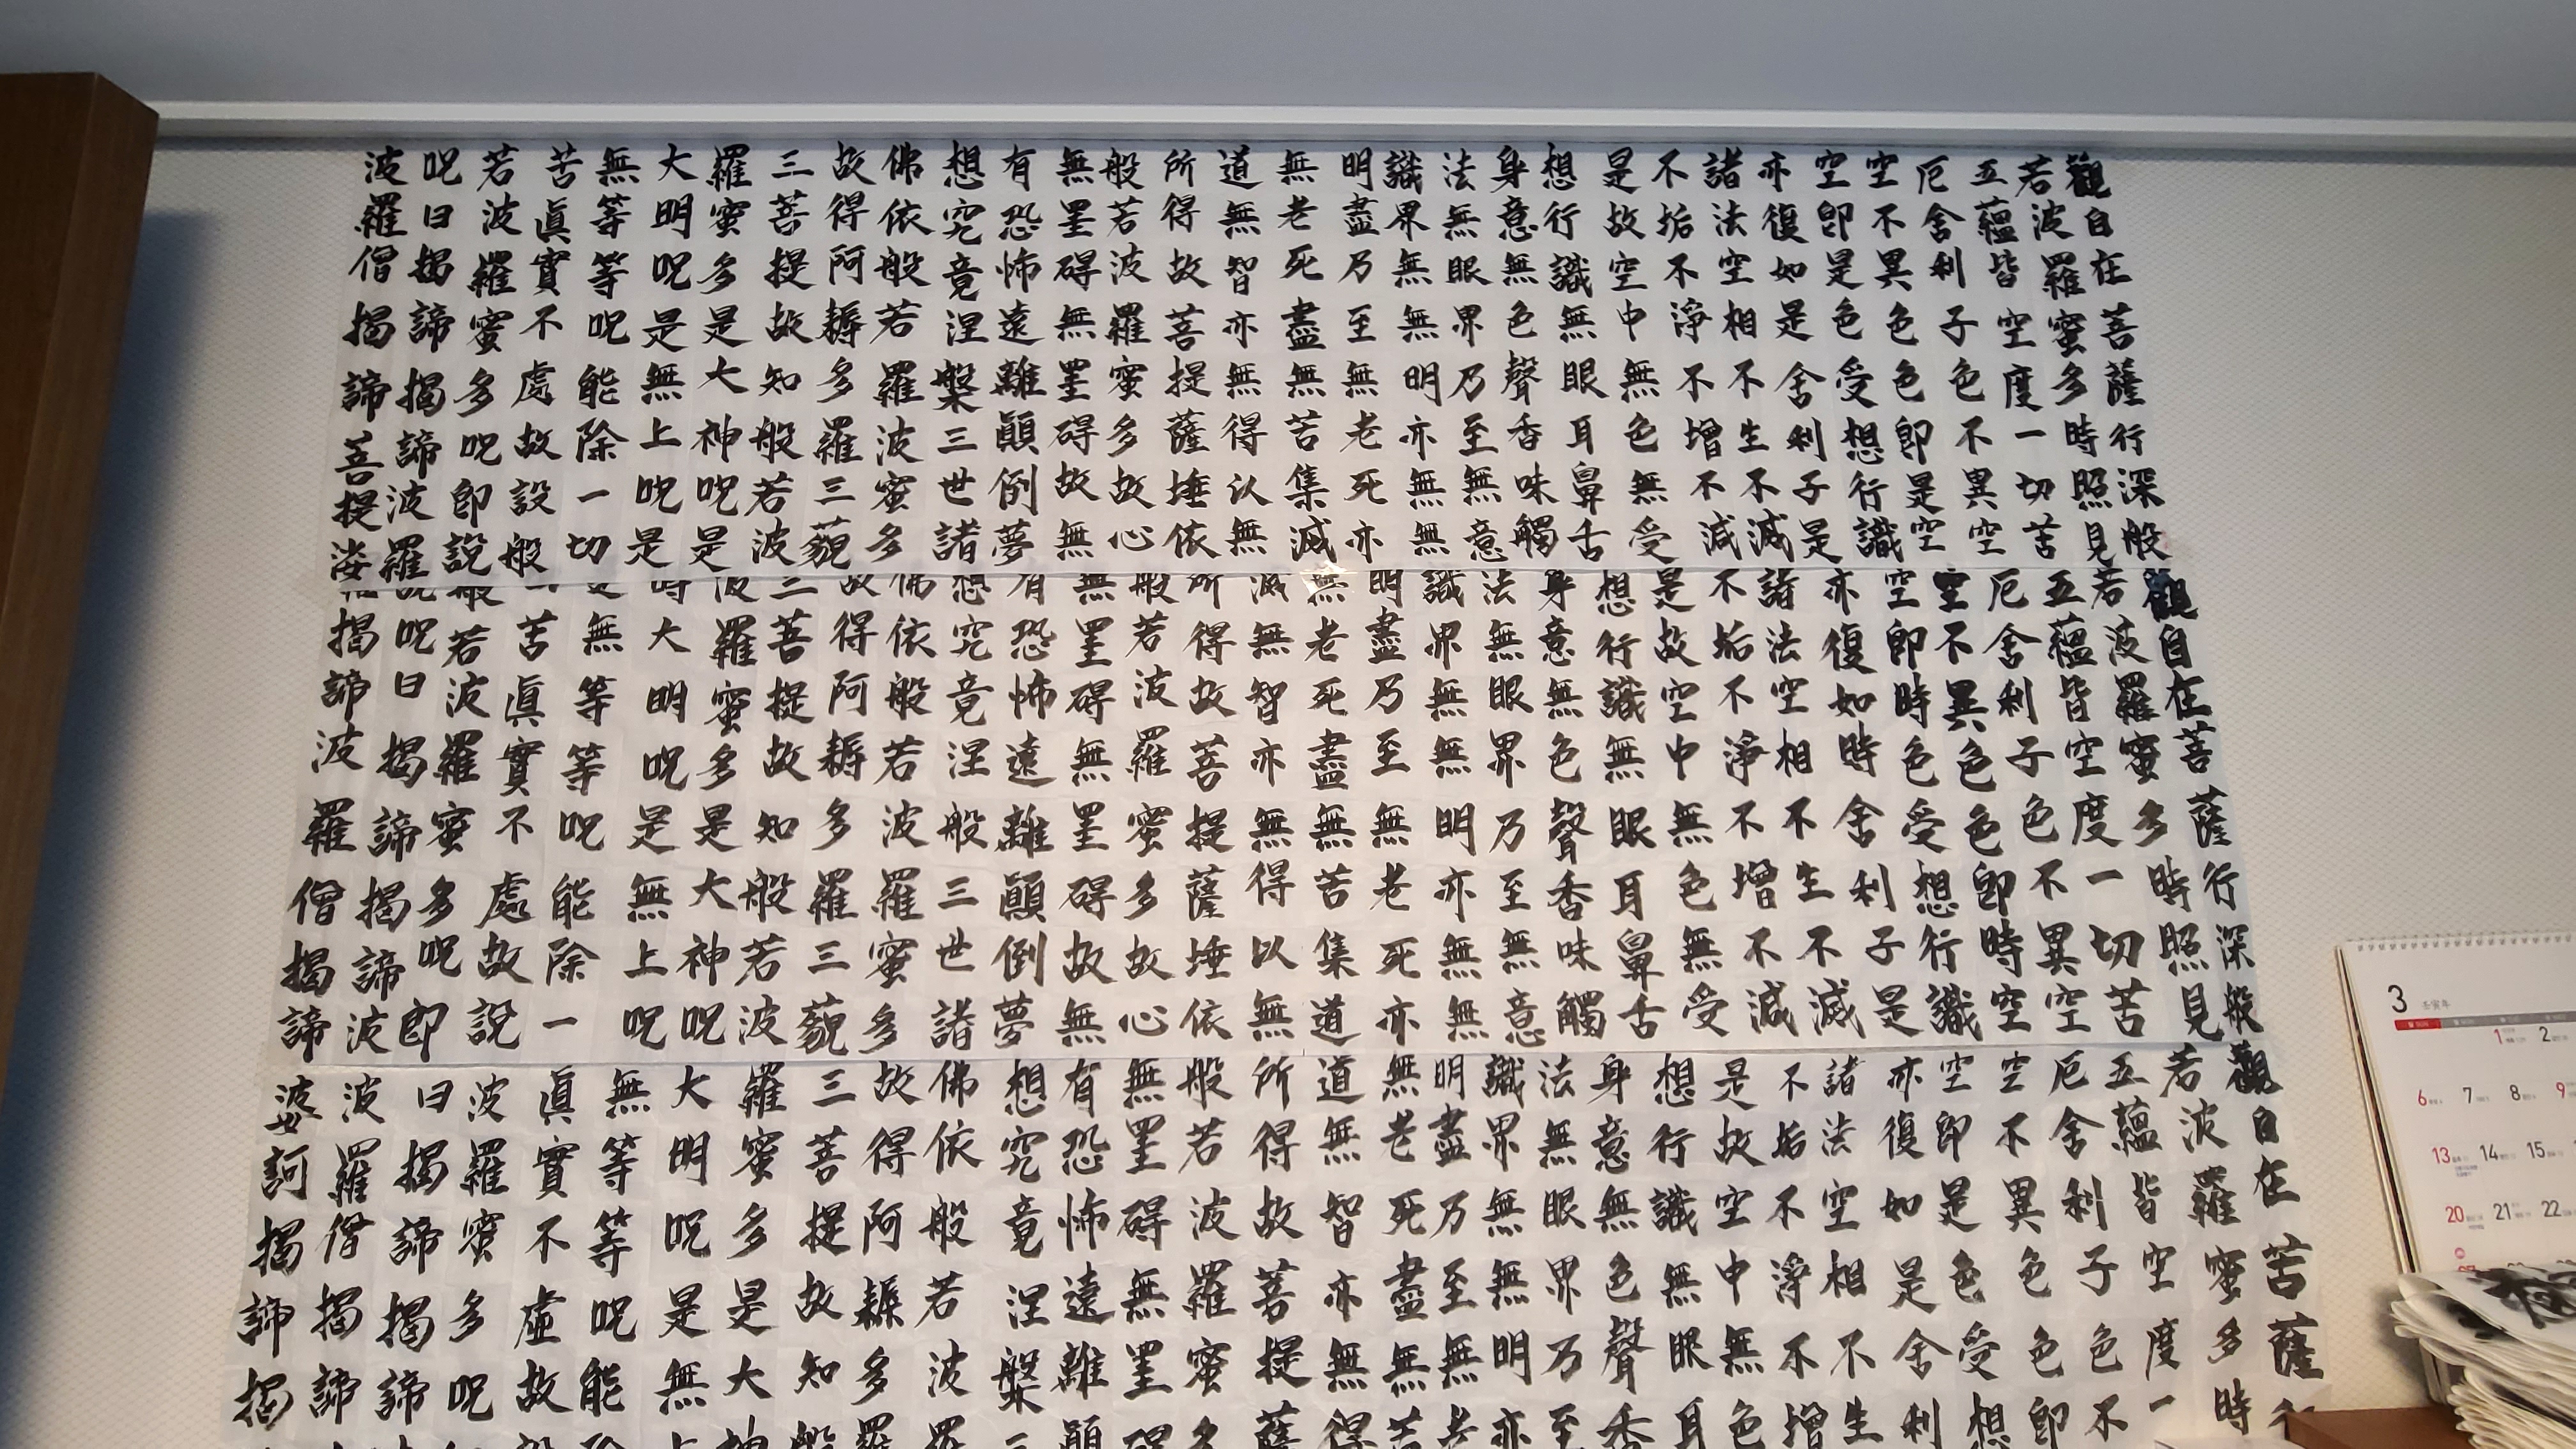 觀自在菩薩行深般
若波羅蜜多時照見
五蘊皆空度一切苦
厄舍利子色不異空
空不異色色即是空
空即是色受想行識
亦復如是舍利子是
諸法空相不生不滅
不垢不淨不增不減
是故空中無色無受
想行識無眼耳鼻舌
身意無色聲香味觸
法無眼界乃至無意
識界無無明亦無無
明盡乃至無老死亦
無老死盡無苦集滅
道無智亦無得以無
所得故菩提薩埵依
般若波羅蜜多故心
無罣碍無罣碍故無
有恐怖遠離顚倒夢
想究竟涅槃三世諸
佛依般若羅波蜜多
故得阿耨多羅三藐
三菩提故知般若波
羅蜜多是大神呪是
大明呪是無上呪是
無等等呪能除一切
苦眞實不處故設般
若波羅蜜多呪即說
呪曰揭諦揭諦波羅
波羅僧揭諦菩提娑
觀自在菩薩行深般
若波羅蜜多時照見
五蘊皆空度一切苦
厄舍利子色不異空
空不異色色即時空
空即時色受想行識
亦復如時舍利子是
諸法空相不生不滅
不垢不淨不增不減
是故空中無色無受
想行識無眼耳鼻舌
身意無色聲香味觸
法無眼界乃至無意
識界無無明亦無無
明盡乃至無老死亦
無老死盡無苦集道
滅無智亦無得以無
所得故菩提薩埵依
般若波羅蜜多故心
無罣碍無罣碍故無
有恐怖遠離顚倒夢
想究竟涅般三世諸
佛依般若波羅蜜多
故得阿耨多羅三藐
三菩提故知般若波
波羅蜜多是大神呪
時大明呪是無上呪
是無等等呪能除一
一苦眞實不處故說
般若波羅蜜多呪即
說呪曰揭諦揭諦波
羅揭諦波羅僧揭諦
觀自在苦薩
若波羅蜜多時
五蘊皆空度一
厄舍利子色不
空不異色色即
空即是色受想
亦復如是舍利
諸法空相不生
不垢不淨不增
是故空中無色
想行識無眼耳
身意無色聲香
法無眼界乃至
識界無無明亦
明盡乃至無老
無老死盡無苦
道無智亦無得
所得故菩提薩
般若波羅蜜多
無罣碍無罣碍
有恐怖遠離顚
想究竟涅槃三
佛依般若波羅
故得阿耨多羅
三菩提故知般
羅蜜多是大神
大明呪是無上
無等等呪能除
眞實不虛故
波羅蜜多呪
曰揭諦揭諦
波羅僧揭諦
婆訶揭諦揭
3
1 2
6 7 8 9
13 14 15
20 21 22